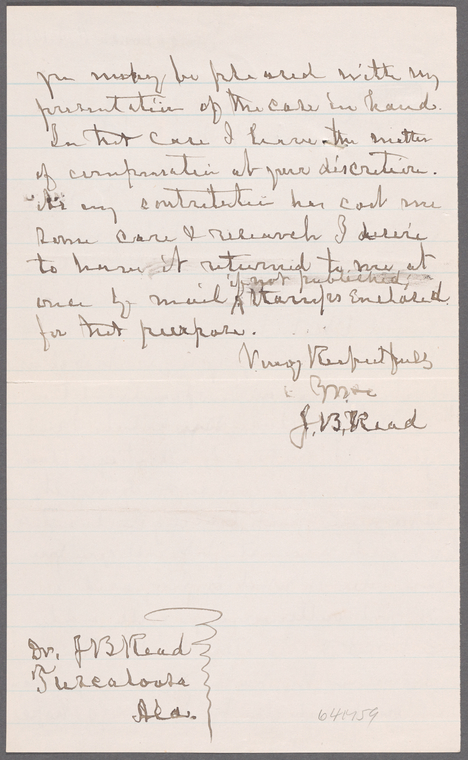 you may be pleased with my
presentation of the case in hand.
In that case I leave the matter
of compensation at your discretion.
As my contribution has cost me
some care & research I desire
to have it returned to me at
if not published,
once by mail Stamps Enclosed
for that purpose.
Very Respectfully
Yours
J. B. Read
Dr. J B Read
Tuscaloosa
Ala.
641459